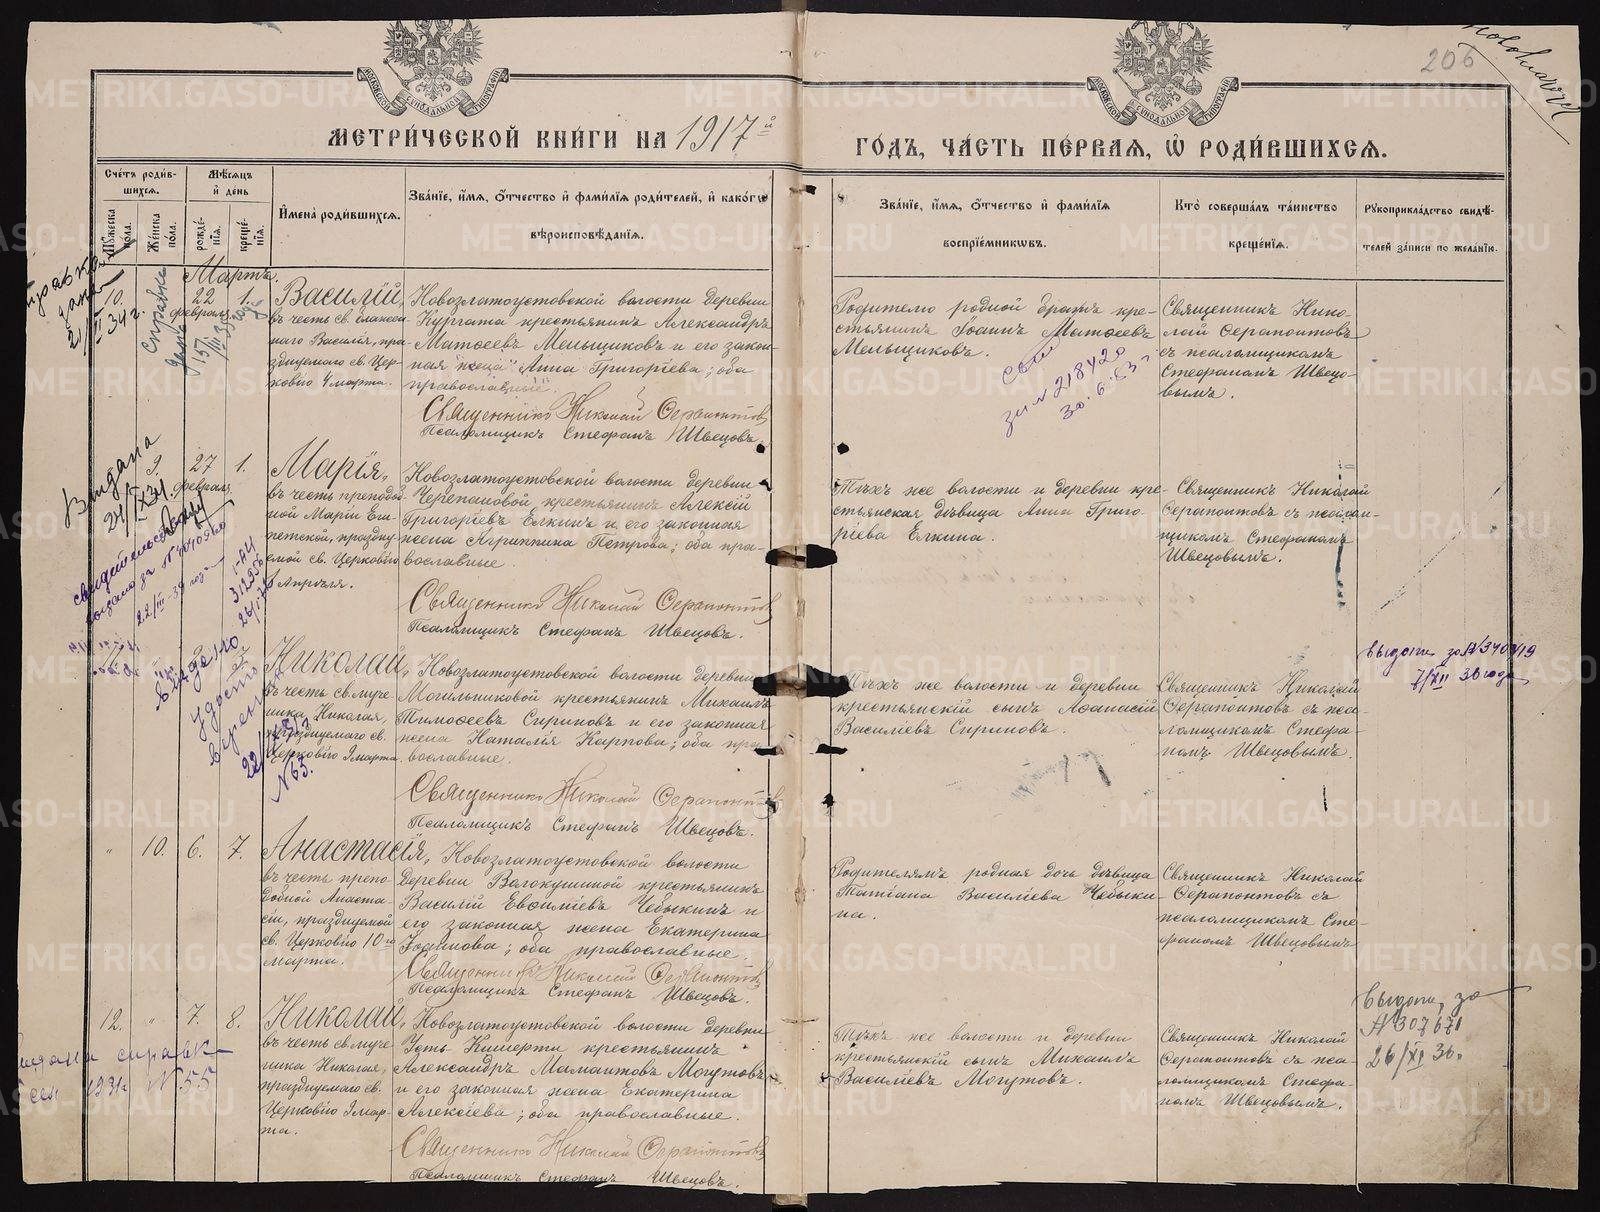 206
МЕТРИ́ЧЕСКОЙ КНИ́ГИ НА 1917й
ГО́ДЪ, ЧА́СТЬ ПЕ́РВАЯ, Ѡ РОДИ́ВШИХСЯ.
Сче́тъ роди́в-
шихся.
Мꙋ́жеска по́ла.
Же́нска по́ла.
Мѣ́сяцъ и҆ де́нь
рожде́-
нїя.
креще́-
нїя.
И҆мена̀ роди́вшихся.
Зва́нїе, и҆́мя, ѻ҆́тчество и҆ фами́лїя роди́телей, и҆ како́гѡ
вѣроисповѣ́данїя.
Зва́нїе, и҆́мя, ѻ҆́тчество и҆ фами́лїя
воспрїе́мникѡвъ.
Кто̀ соверша́лъ та́инство
креще́нїя.
Рꙋкоприкла́дство свидѣ́-
телей за́писи по жела́нїю.
Мартъ.
10.
22
февраля
1.
Василій,
въ честь св. священ-
наго Василія, пра-
зднуемаго св. Цер-
ковію 4 марта.
Новозлатоустовской волости деревни
Кургата крестьянинъ Александръ
Матѳеевъ Меньщиковъ и его закон-
ная жена Анна Григоріева; оба
православные.
Священникъ Николай Серапонтовъ
Псаломщикъ Стефанъ Швецовъ.
Родителю родной братъ кре-
стьянинъ Іоаннъ Матѳеевъ
Меньщиковъ.
Священникъ Нико-
лай Серапонтовъ
съ псаломщикомъ
Стефаномъ Швецо-
вымъ.
№ 218420
30.6.53
9.
27
февраля
1.
Марія,
въ честь преподоб-
ной Маріи Еги-
петской, праздну-
емой св. Церковію
1 Апрѣля.
Новозлатоустовской волости деревни
Черепановой крестьянинъ Алексій
Григоріевъ Елкинъ и его законная
жена Агриппина Петрова; оба пра-
вославные.
Священникъ Николай Серапонтовъ
Псаломщикъ Стефанъ Швецовъ.
Тѣхъ же волости и деревни кре-
стьянская дѣвица Анна Григо-
ріева Елкина.
Священникъ Николай
Серапонтовъ съ псалом-
щикомъ Стефаномъ
Швецовымъ.
Николай,
въ честь св. муче-
ника Николая,
празднуемаго св.
Церковію 9 марта.
Новозлатоустовской волости деревни
Могильниковой крестьянинъ Михаилъ
Тимоѳеевъ Спириновъ и его законная
жена Наталія Карпова; оба пра-
вославные.
Священникъ Николай Серапонтовъ
Псаломщикъ Стефанъ Швецовъ.
Тѣхъ же волости и деревни
крестьянскій сынъ Аѳанасій
Василіевъ Спириновъ.
Священникъ Николай
Серапонтовъ съ пса-
ломщикомъ Стефа-
номъ Швецовымъ.
7/XII 36 года
№ 65.
"
10.
6.
7.
Анастасія,
въ честь препо-
добной Анаста-
сіи, празднуемой
св. Церковію 10го
марта.
Новозлатоустовской волости
деревни Волокушиной крестьянинъ
Василій Евѳиміевъ Чебыкинъ и
его законная жена Екатерина
Іоаннова; оба православные.
Священникъ Николай Серапонтовъ
Псаломщикъ Стефанъ Швецовъ.
Родителямъ родная дочь дѣвица
Татіана Василіева Чебыки-
на.
Священникъ Николай
Серапонтовъ съ
псаломщикомъ Сте-
фаномъ Швецовымъ
12.
"
7.
8.
Николай,
въ честь св. муче-
ника Николая,
празднуемаго св.
Церковію 9 мар-
та.
Новозлатоустовской волости деревни
Усть-Кишерти крестьянинъ
Александръ Мамантовъ Могутовъ
и его законная жена Екатерина
Алексіева; оба православные.
Священникъ Николай Серапонтовъ
Псаломщикъ Стефанъ Швецовъ.
Тѣхъ же волости и деревни
крестьянскій сынъ Михаилъ
Василіевъ Могутовъ.
Священникъ Николай
Серапонтовъ съ пса-
ломщикомъ Стефа-
номъ Швецовымъ.
Выдана за
№ 307671
26/XI 36.
справк
1931 г. № 55
METRIKI.GASO-URAL.RU